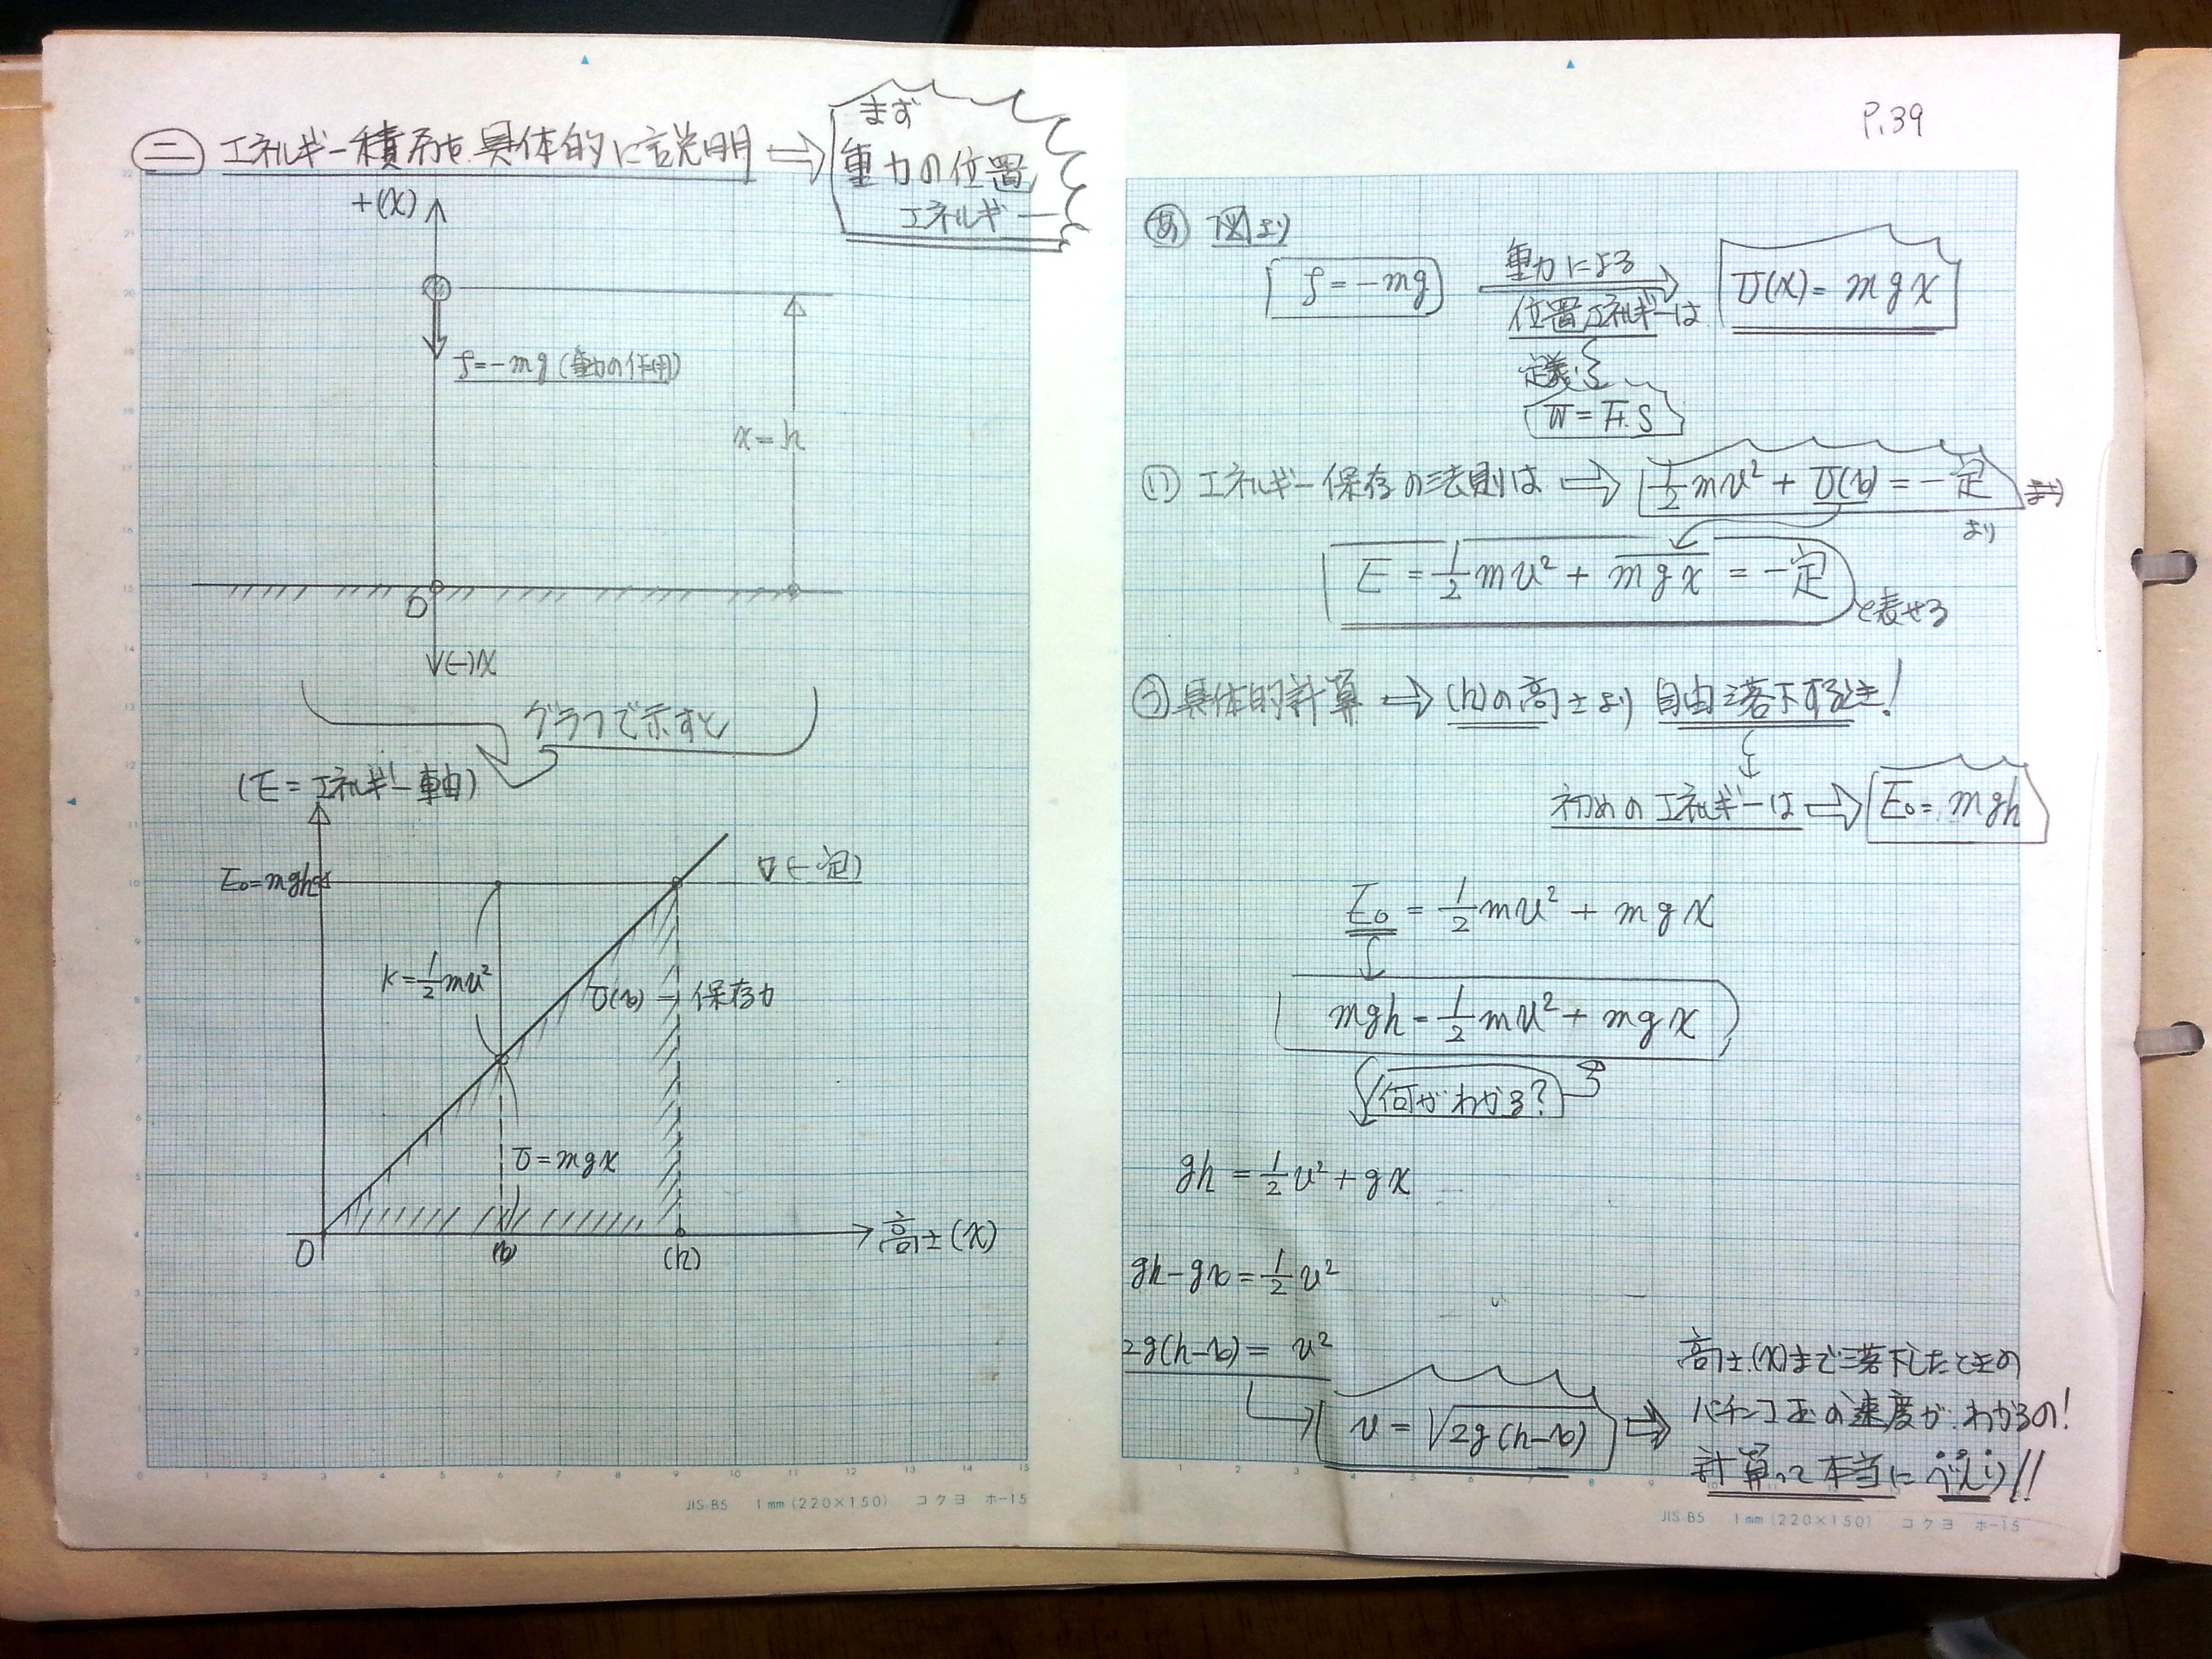 ㊁ エネルギー積分を具体的に説明 ⇨
まず
重力の位置
エネルギー
+(x)
f=-mg (重力の作用)
x=h
O
(-)x
グラフで示すと
(E=エネルギー軸)
E₀=mgh
(一定)
K=1/2mv²
U(x) → 保存力
U=mgx
O
(x)
(h)
高さ(x)
JIS-B5 1mm(220×150) コクヨ ホ-15
P.39
あ 図より
f=-mg
重力による
位置エネルギーは
U(x)=mgx
定義
W=F.S
い エネルギー保存の法則は ⇨ 1/2mv²+U(x)=一定
より
E=1/2mv²+mgx=一定
と表せる
う 具体的計算 ⇨ (h)の高さより 自由落下するとき!
初めのエネルギーは ⇨ E₀=mgh
E₀=1/2mv²+mgx
mgh=1/2mv²+mgx
何がわかる?
gh=1/2v²+gx
gh-gx=1/2v²
2g(h-x)=v²
v=√2g(h-x) ⇨
高さ(x)まで落下したときの
パチンコ玉の速度が、わかるの!
計算って本当に
JIS-B5 1mm(220×150) コクヨ ホ-15